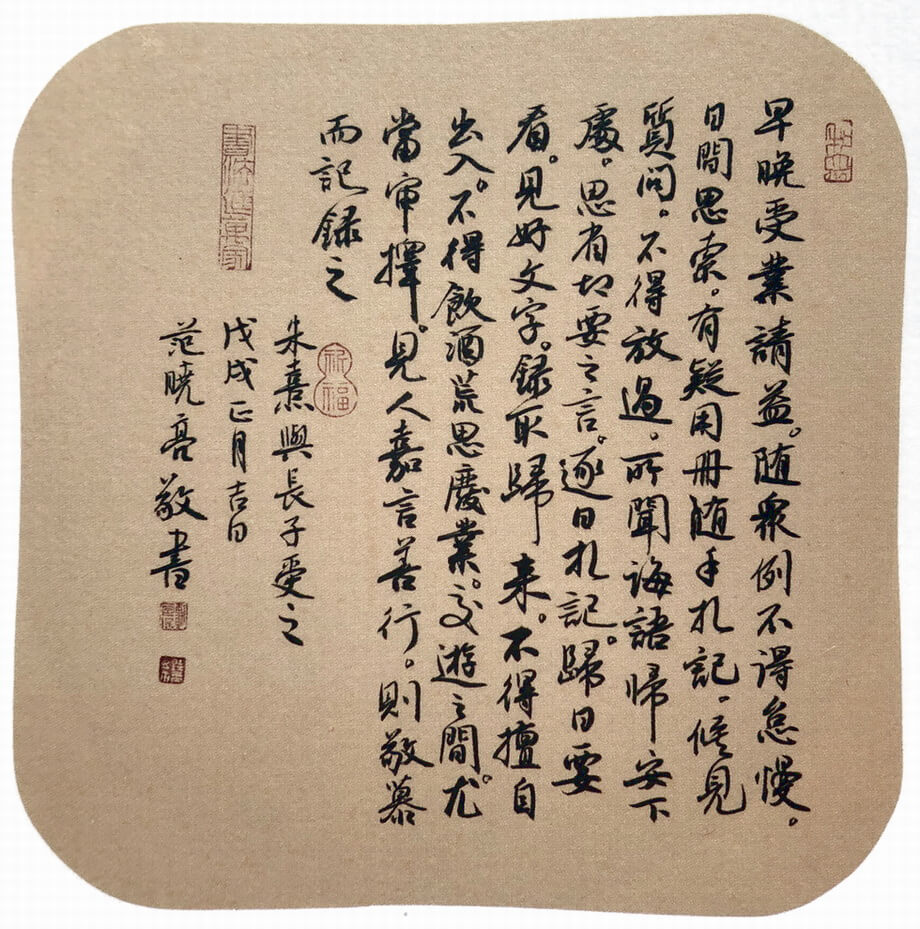 早晚受業請益。随衆例不得怠慢。
日間思索。有疑用冊随手札記。候見
質問。不得放過。所聞誨語歸安下
處。思省切要之言。逐日札記。歸日要
看。見好文字。録取歸来。不得擅自
出入。不得飲酒荒思廢業。交遊之間。尤
當审擇。見人嘉言善行。則敬慕
而記録之
朱熹與長子受之
戊戌正月吉日
范曉亮敬書
祈福